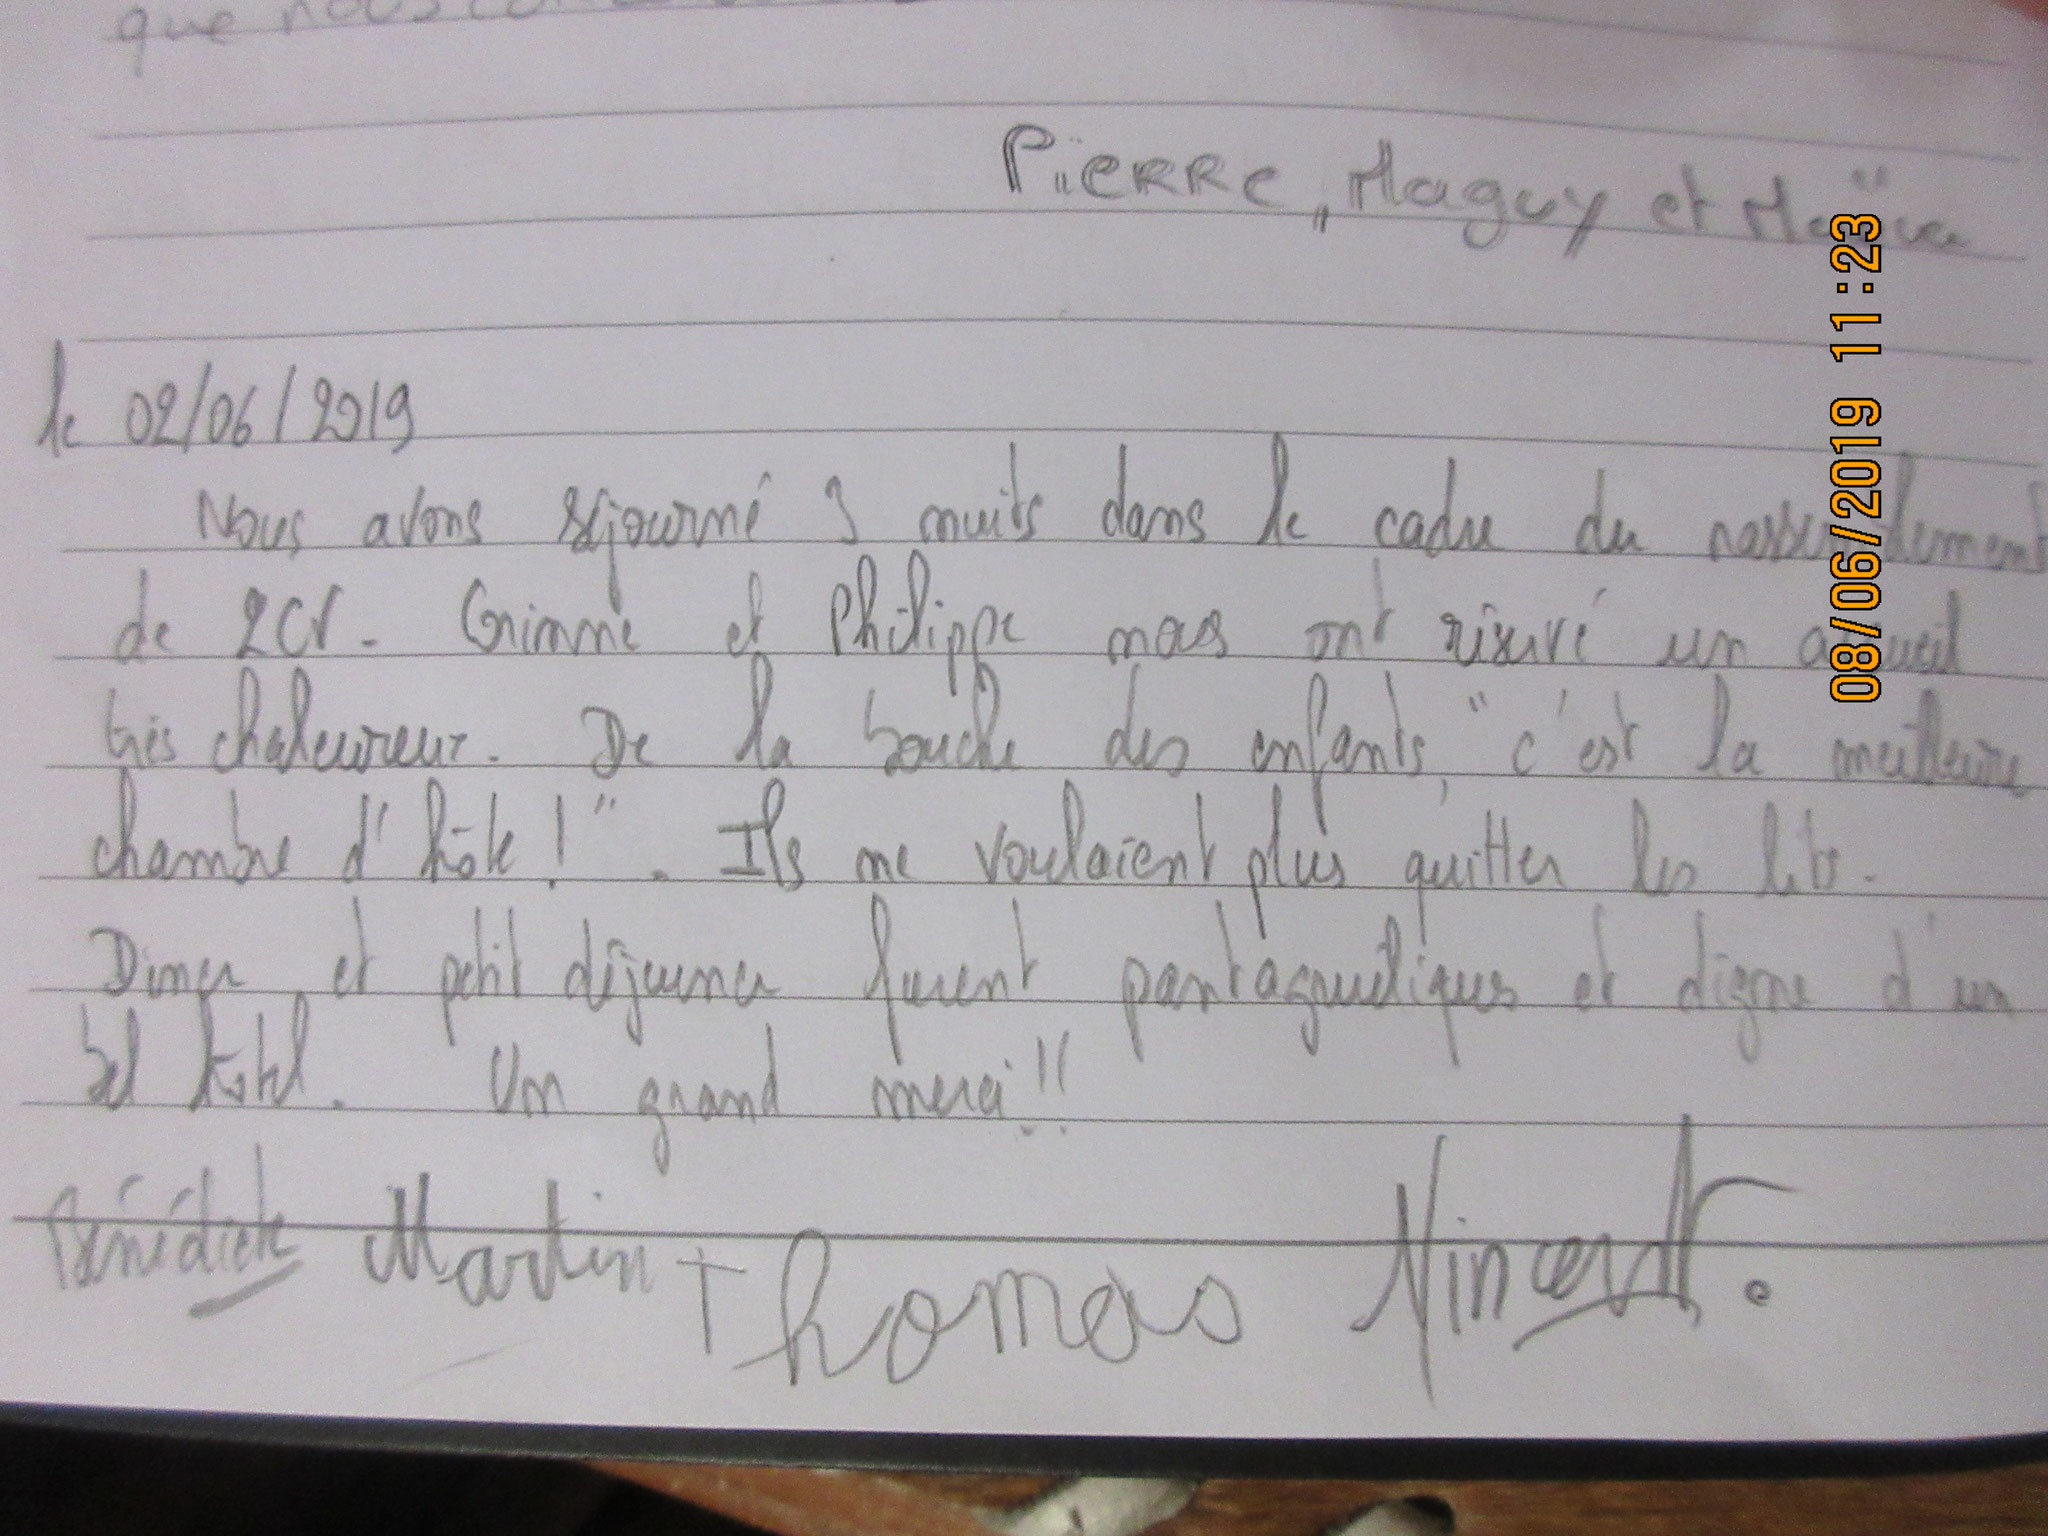 que nous
Pïerre, Maguy et
le 02/06/2019
Nous avons séjourné 3 nuits dans le cadre du rassemblement
de 2CV. Corinne et Philippe nous ont réservé un accueil
très chaleureux. De la bouche des enfants, "c'est la meilleure
chambre d'hôte !". Ils ne voulaient plus quitter les lits.
Diner et petit déjeuner furent pantagruéliques et digne d'un
bel hotel. Un grand merci !!
Bénédicte Martin Thomas Vincent.
08/06/2019 11:23